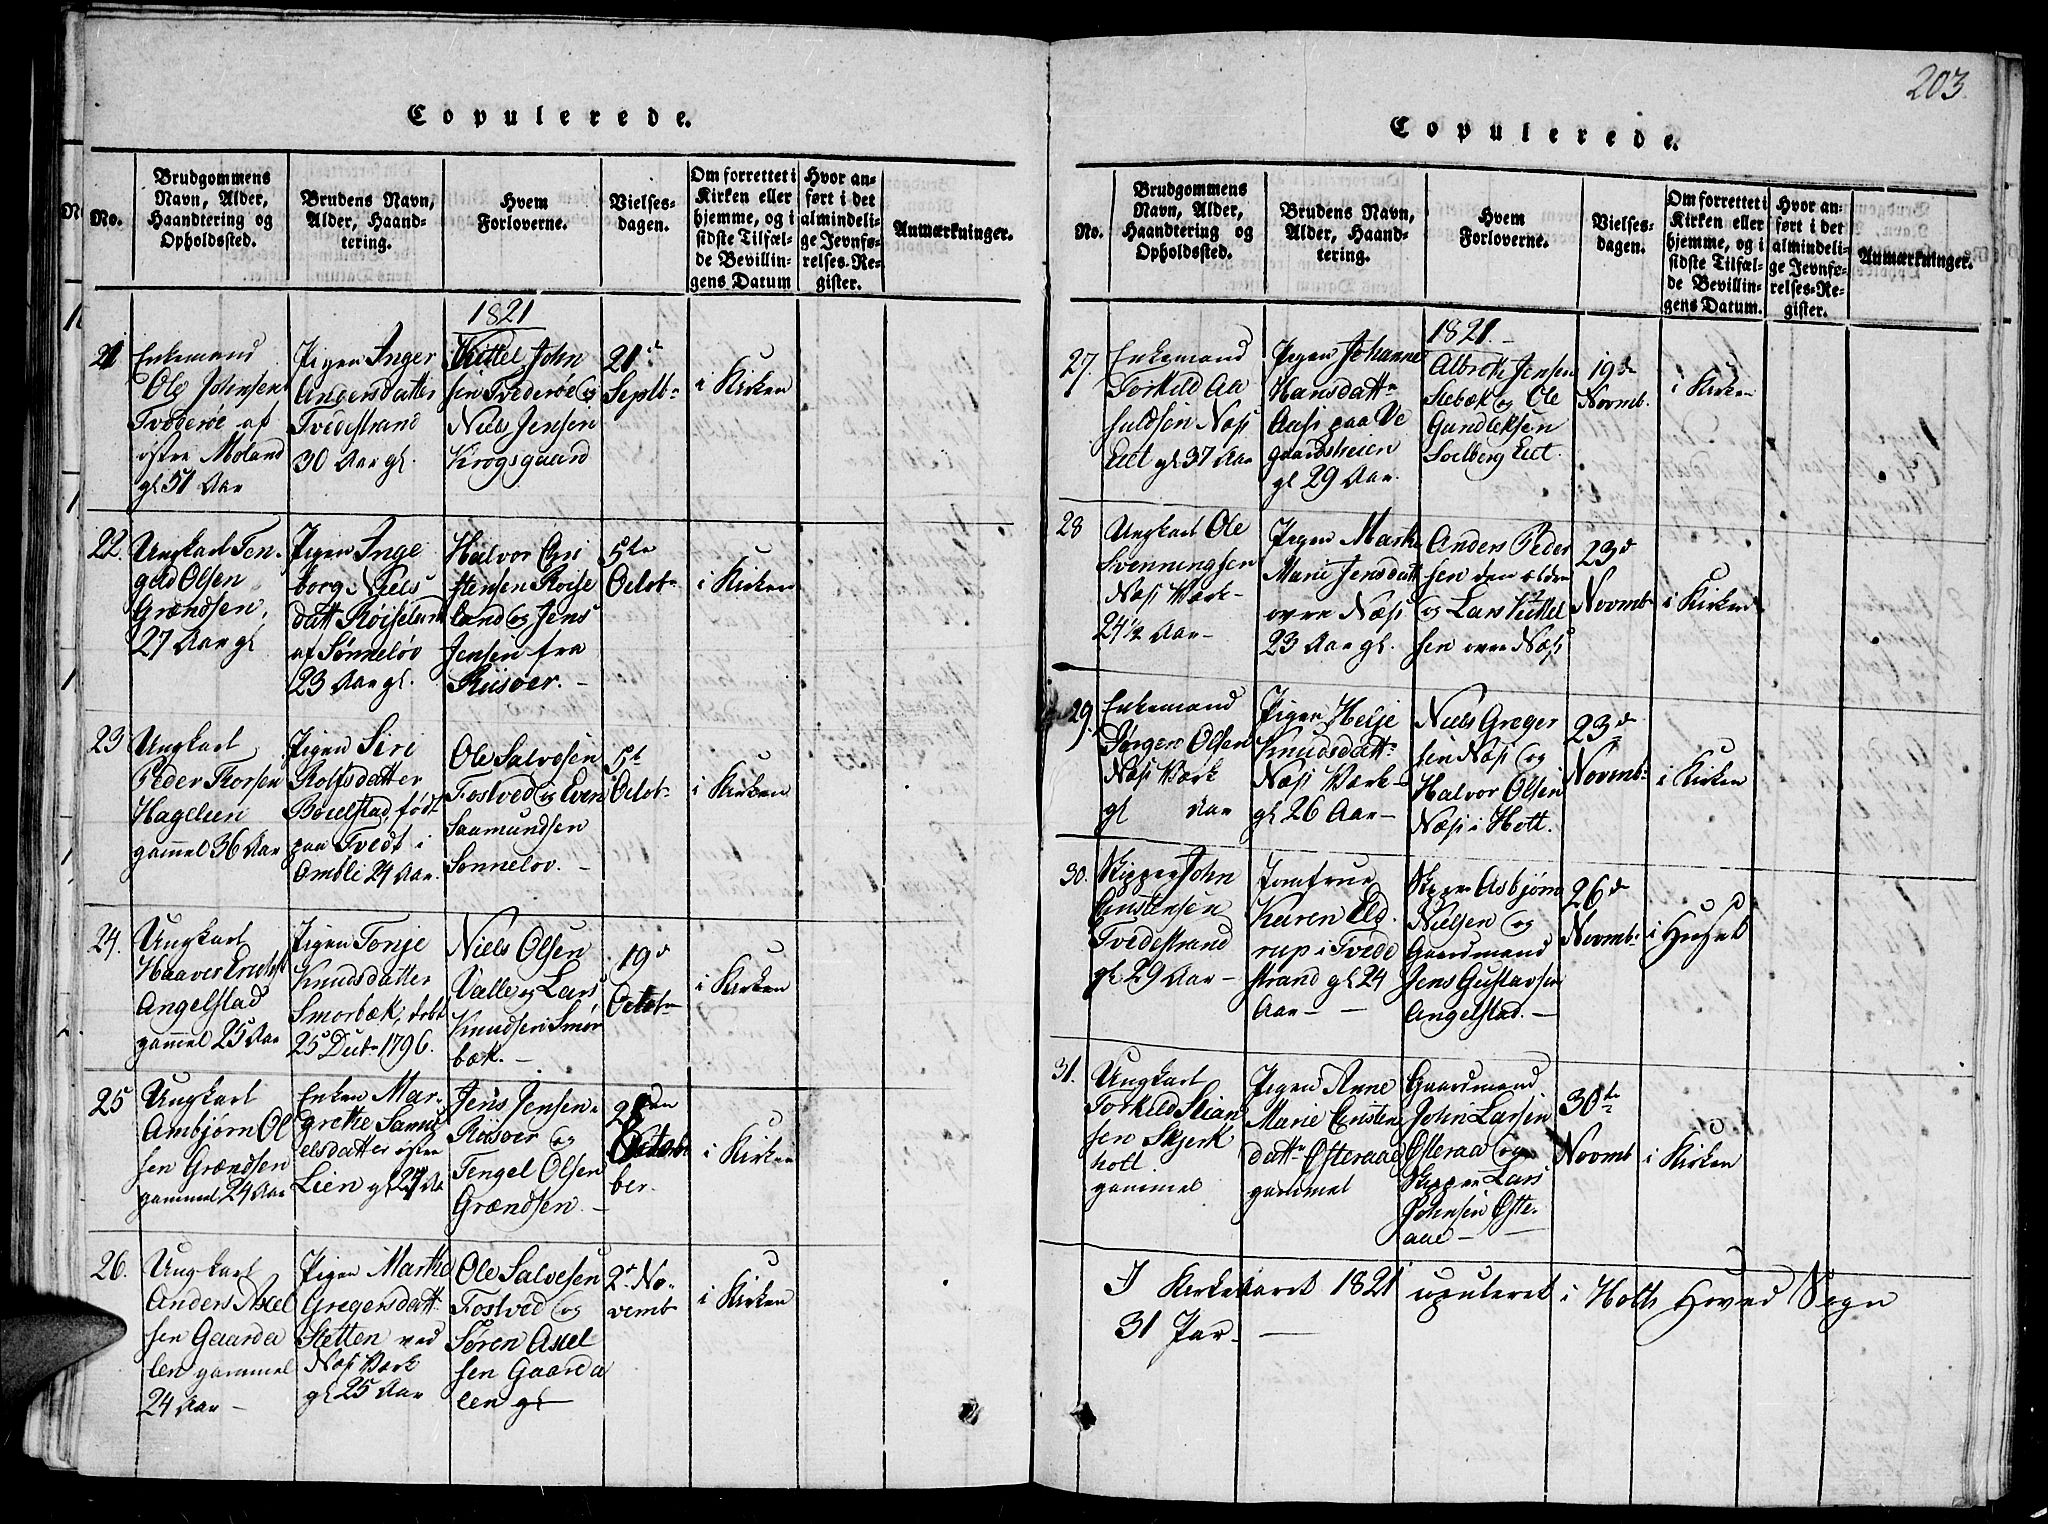 203.
Copulerede.
No.
Brudgommens
Navn, Alder,
Haandtering og
Opholdssted.
Brudens Navn,
Alder, Haand-
tering.
Hvem
Forloverne.
Vielses-
dagen.
Om forrettet i
Kirken eller
hjemme, og i
sidste Tilfæl-
de Bevillin-
gens Datum
Hvor an-
ført i det
almindeli-
ge Jevnfø-
relses-Re-
gister.
Anmærkninger.
1821
21
Enkemand
Ole Johnsen
Tvederøe af
østre Moland
gl 51 Aar
Pigen Inger
Andersdatter
Tvedestrand
30 Aar gl.
Kittel John
sen Tvederøe og
Niels Jensen
Krogsgaard
21de
Septb-
i Kirken
22.
Ungkarl Ten-
gel Olsen
Grændsen,
27 Aar gl
Pigen Inge
borg Niels
datt Røiseland
af Sønneløv
23 Aar gl.
Halvor Chri
stensen Røise
land og Jens
Jensen fra
Riisøer. -
5te
Octob-
i Kirken
23
Ungkarl
Peder Thorsen
Hageleen
gammel 36 Aar
Pigen Siri
Rolfsdatter
Boielstad, født
paa Tvedt i
Ombli 24 Aar.
Ole Salvesen
Fostved og Even
Saamundsen
Sønneløv. -
5te
Octob-
i Kirken
24.
Ungkarl
Haaver
Angelstad
gammel 25 Aar
Pigen Tonje
Knudsdatter
Smorbæk, døbt
25 Decb- 1796.
Niels Olsen
Valle og Lars
Knudsen Smør
bæk. -
19d
Octob-
i Kirken
25
Ungkarl
Ambjørn Ol
sen Grændsen
gammel 24 Aar
Enken Mar-
grethe Samu
elsdatter østre
Lien gl 27 Aa
Jens Jensen
Røisøer og
Tengel Olsen
Grændsen. -
Octob
ber.
i Kirken
26.
Ungkarl
Anders Axel
sen Gaarda
len gammel
24 Aar -
Pigen Marthe
Gregersdatt
Sletten ved
Næs Værk
gl 25 Aar
Ole Salvesen
Fostved og
Søren Axel
sen Gaarda
len gl
2d No-
vemb
i Kirken
Copulerede.
No.
Brudgommens
Navn, Alder,
Haandtering og
Opholdssted.
Brudens Navn,
Alder, Haand-
tering.
Hvem
Forloverne.
Vielses-
dagen.
Om forrettet i
Kirken eller
hjemme, og i
sidste Tilfæl-
de Bevillin-
gens Datum.
Hvor an-
ført i det
almindeli-
ge Jevnfø-
relses-Re-
gister.
Anmærkninger.
1821. -
27.
Enkemand
Torkild Aa
Næs
Eiet gl 37 Aar
Pigen Johanne
Hansdattr
Aas paa Ve
gaardsheien
gl 29 Aar.
Albreth Jensen
Stebæk og Ole
Gundleksen
Solberg Eiet.
19de
Novmb.
i Kirken
28
Ungkarl Ole
Svenningsen
Næs Værk-
24 1/2 Aar -
Pigen Marthe
Marie Jensdatt
øvre Næs
23 Aar gl.
Anders Peder
sen den ældre
og Lars Kittel
sen øvre Næs
23d
Novmb
i Kirken
29.
Enkemand
Jørgen Olsen
Næs Værk
gl Aar
Pigen Helje
Knudsdatt-
Næs Værk-
gl 26 Aar -
Niels Greger
sen Næs og
Halvor Olsen
Næs i Holt.
23de
Novmb-
i Kirken
30.
Skipper John
Christensen
Tvedestrand
gl. 29 Aar -
Jomfrue
Karen Eld
rup i Tvede
strand gl 24
Aar -
Skipper Asbjørn
Nielsen og
Gaardmand
Jens Gustavsen
Angelstad. -
26d
Novmb-
i Huset
31.
Ungkarl
Torkild Stian
sen Skjerk
holt
gammel
Pigen Anne
Marie Christen
dattr Østeraae
gammel
Gaardmand
John Larsen
Østeraa og
Skipper Lars
Johnsen Øste-
aae -
30te
Novmb
i Kirken
I Kirkeaaret 1821 copuleret i Holts Hoved Sogn
31 Par -